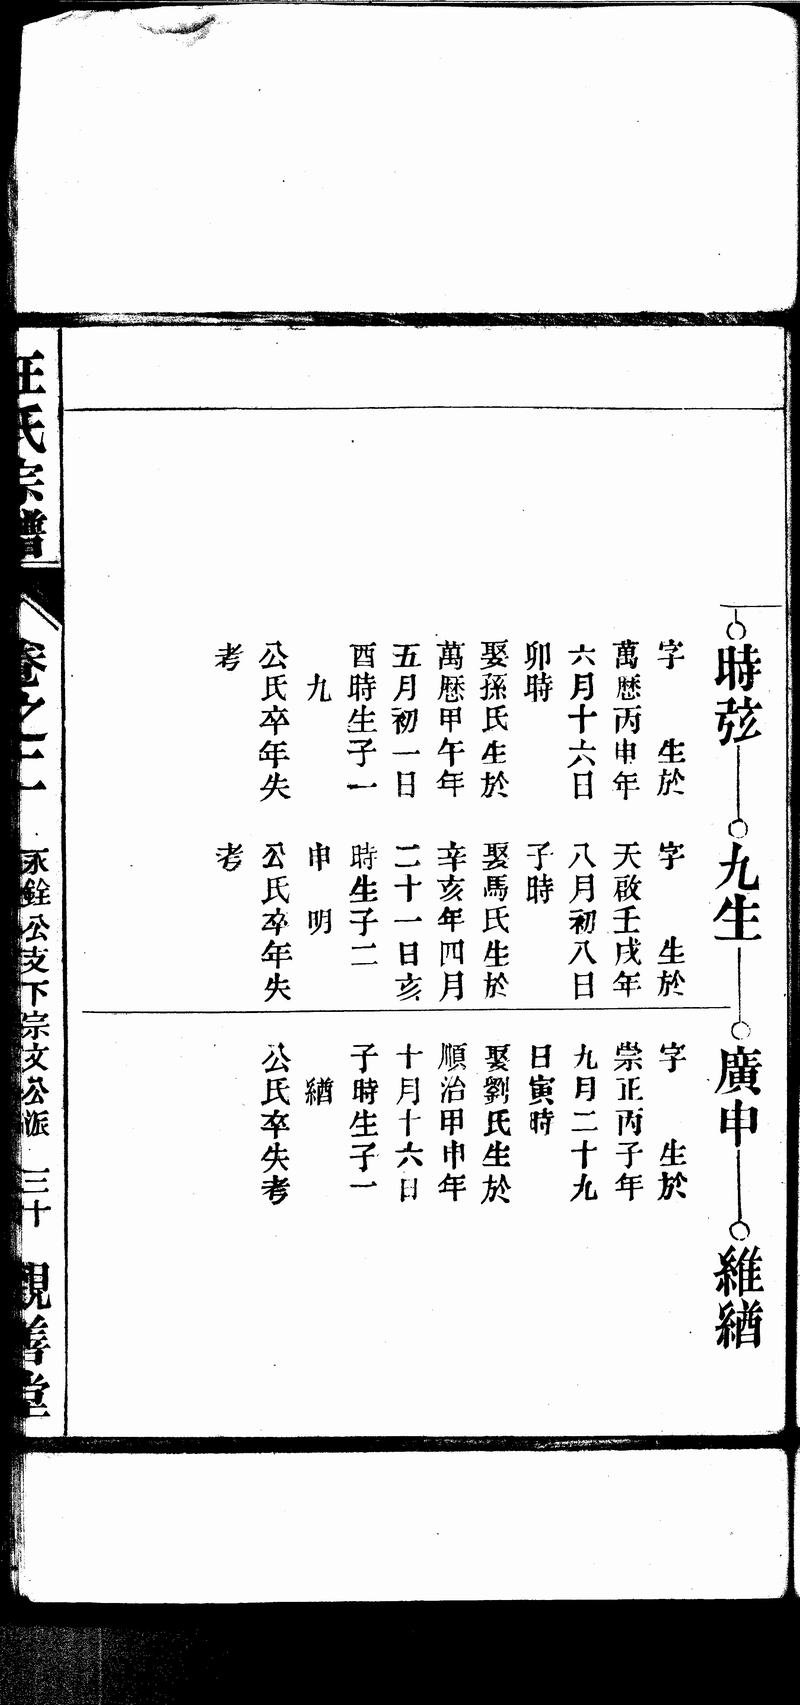 時弦
九生
廣申
維緧
字 生於
萬曆丙申年
六月十六日
卯時
娶孫氏生於
萬曆甲午年
五月初一日
酉時生子一
九
公氏卒年失
考
字 生於
天啟壬戌年
八月初八日
子時
娶馬氏生於
辛亥年四月
二十一日亥
時生子二
申 明
公氏卒年失
考
字 生於
崇正丙子年
九月二十九
日寅時
娶劉氏生於
順治甲申年
十月十六日
子時生子一
緧
公氏卒失考
汪氏宗譜
卷之二
永銓公支下宗文公派
三十
親善堂